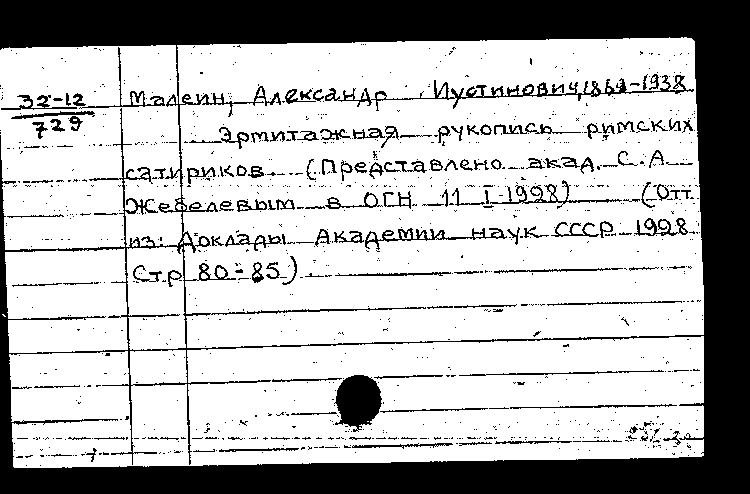 32-12
729
Малеин, Александр Иустинович, 1869-1938
Эрмитажная рукопись римских
сатириков. (Представлено акад. С. А
Жебелевым в ОГН 11 I-1928) (Отт
из: Доклады Академии наук СССР 1928
Стр 80-85).